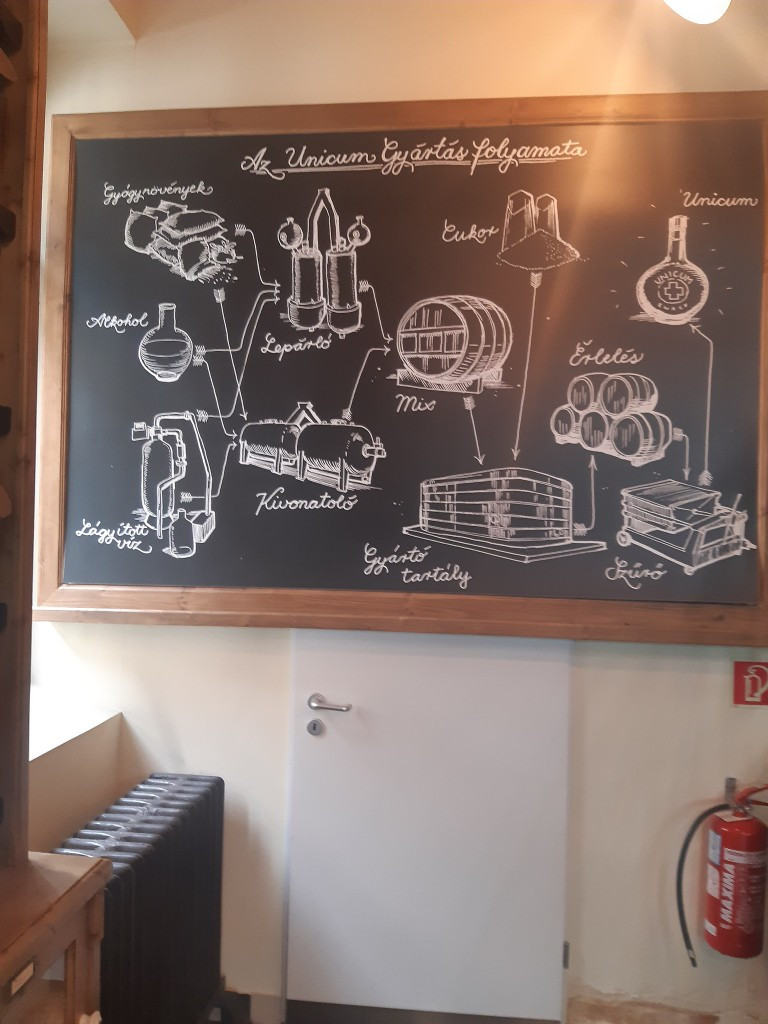 Az Unicum Gyártás folyamata
Gyógynövények
Cukor
Unicum
UNICUM
Alkohol
Lepárló
Érlelés
Mix
Kivonatoló
Lágyított
víz
Gyártó
tartály
Szűrő
MAXIMA